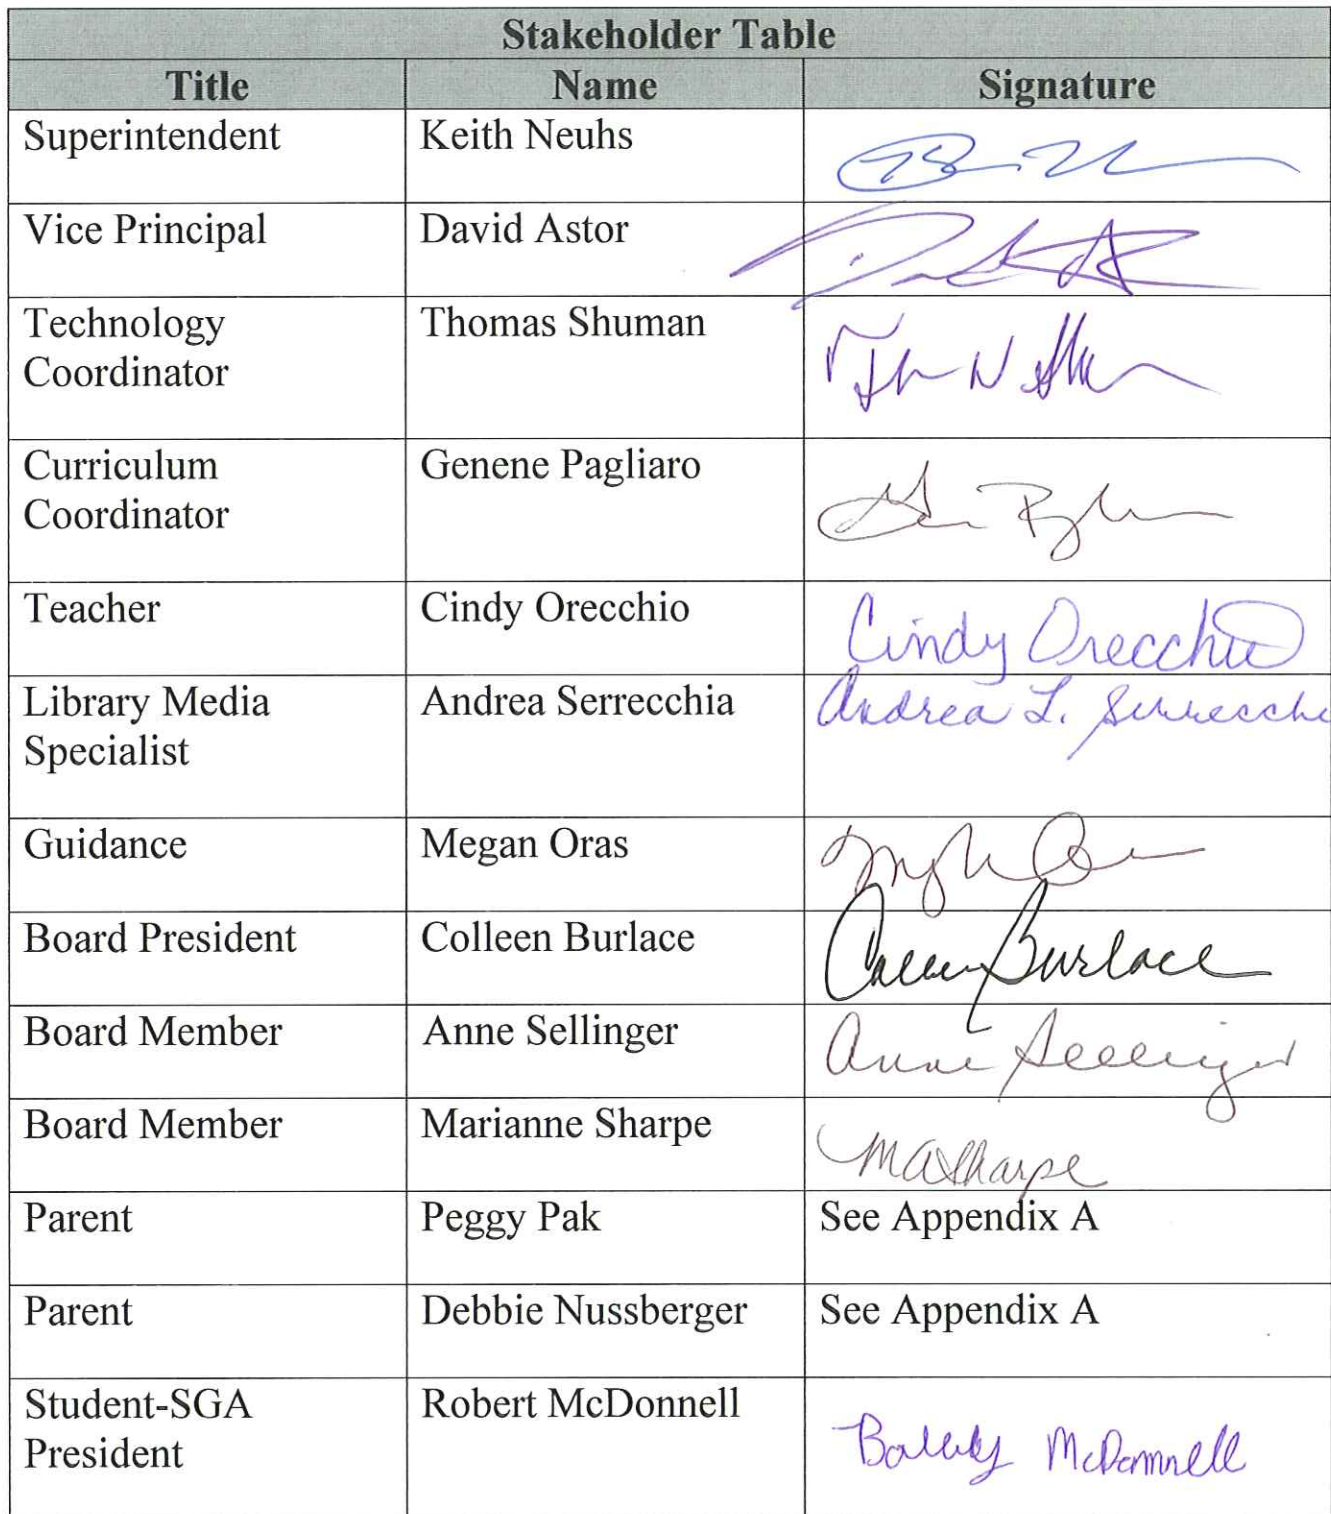 Stakeholder Table
Title Name Signature
Superintendent Keith Neuhs
Vice Principal David Astor
Technology Thomas Shuman
Coordinator
Curriculum Genene Pagliaro
Coordinator
Teacher Cindy Orecchio Cindy Orecchio
Library Media Andrea Serrecchia Andrea L. Serrecchi
Specialist
Guidance Megan Oras
Board President Colleen Burlace Colleen Burlace
Board Member Anne Sellinger Anne Sellinger
Board Member Marianne Sharpe MASharpe
Parent Peggy Pak See Appendix A
Parent Debbie Nussberger See Appendix A
Student-SGA Robert McDonnell
President McDonnell